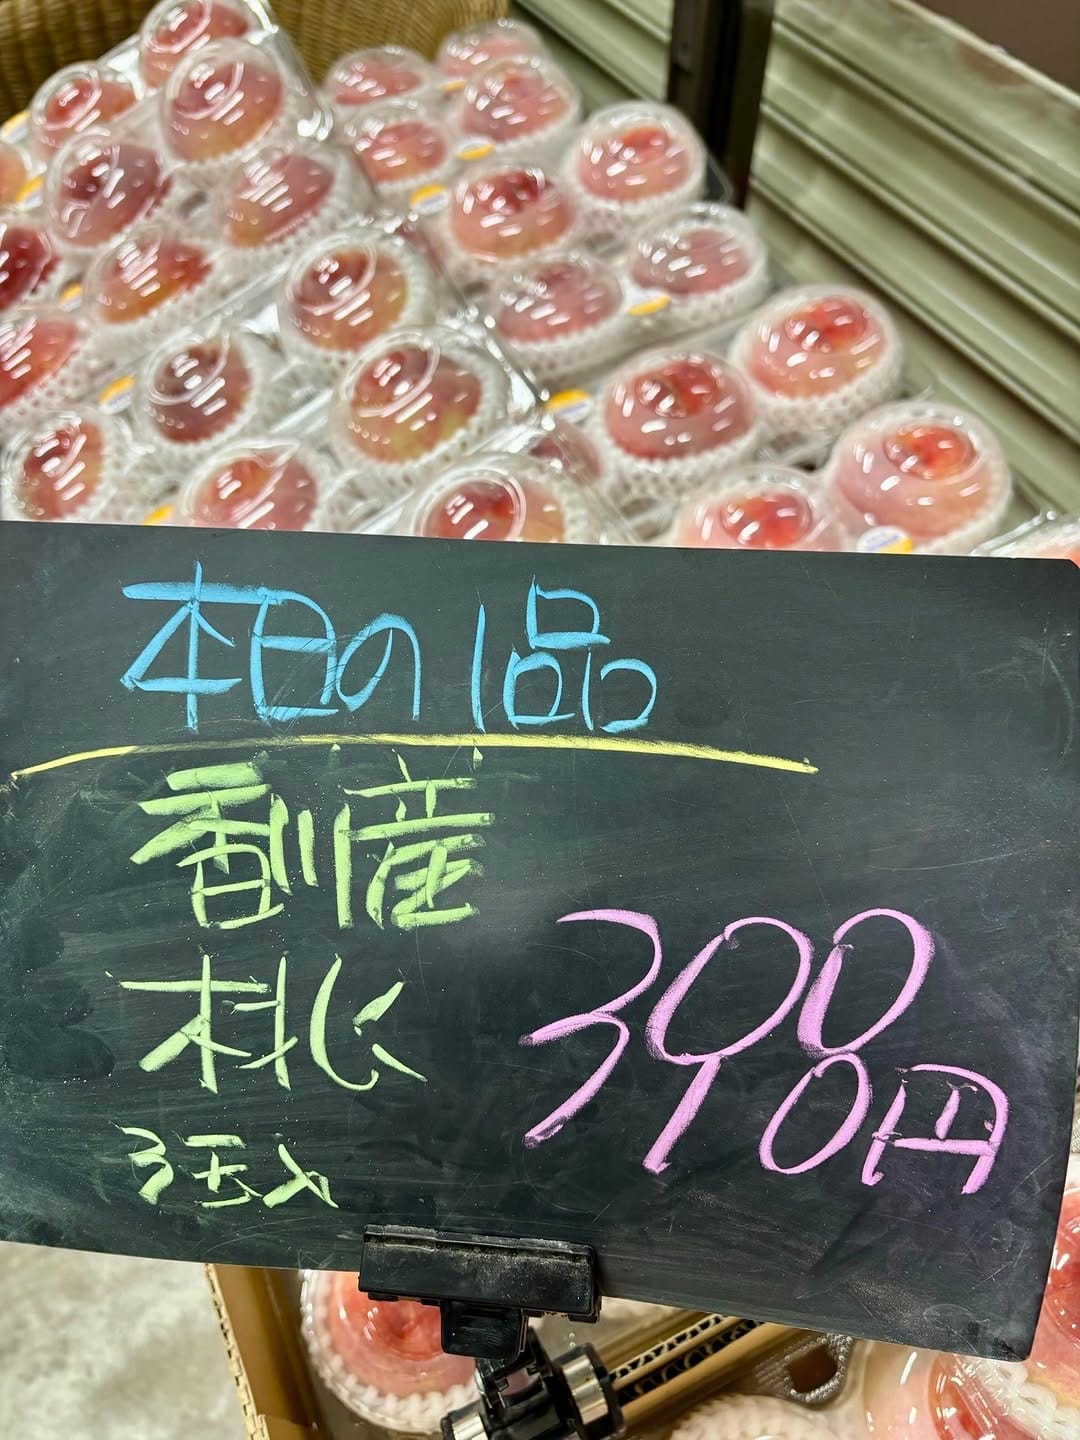 本日の1品
香川産
桃
3玉入
3900円